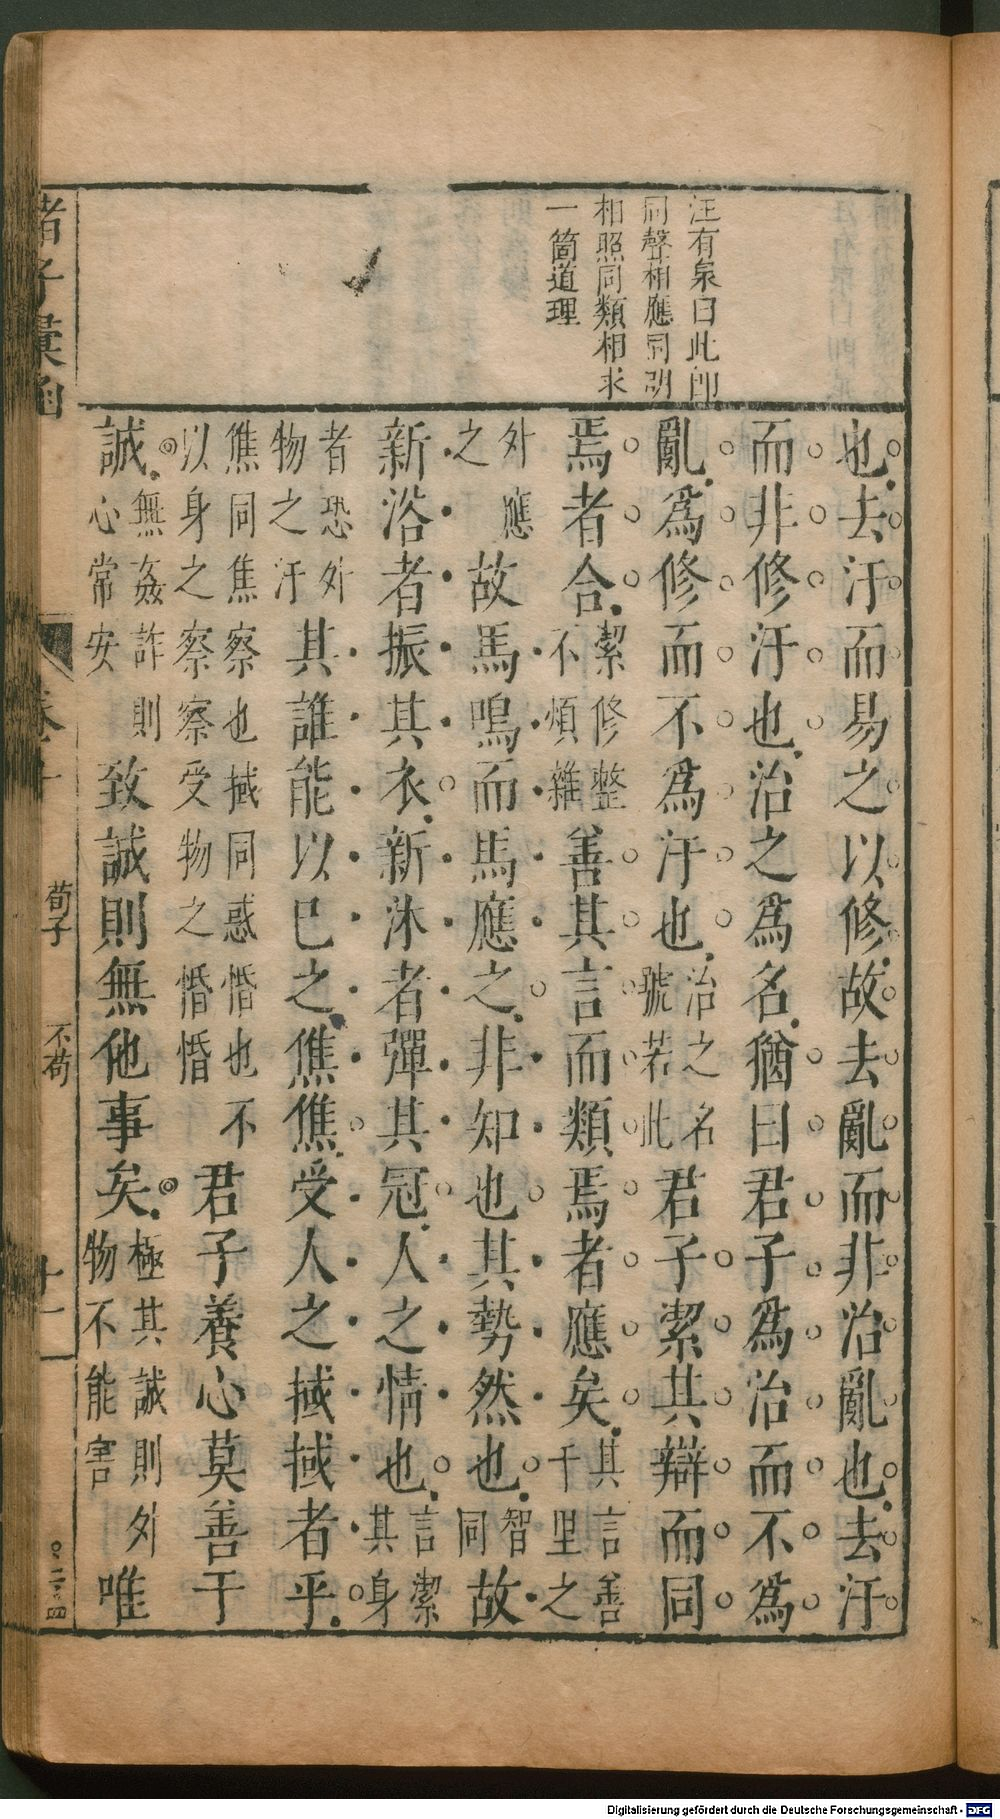 汪有泉曰此卽
同聲相應同明
相照同類相求
一箇道理
也去汙而易之以修故去亂而非治亂也去汙
而非修汙也治之爲名猶曰君子爲治而不爲
亂爲修而不爲汙也治之名號若此君子潔其辯而同
焉者合潔修整不煩雜善其言而類焉者應矣其言善千里之
外應之故馬鳴而馬應之非知也其勢然也智同故
新浴者振其衣新沐者彈其冠人之情也言潔其身
者恐外物之汙其誰能以巳之僬僬受人之掝掝者乎
僬同焦察也掝同惑惛也不以身之察察受物之惛惛君子養心莫善于
誠無姦詐則心常安致誠則無他事矣極其誠則外物不能害唯
諸子彙函
卷
荀子
不苟
十一
Digitalisierung gefördert durch die Deutsche Forschungsgemeinschaft - DFG